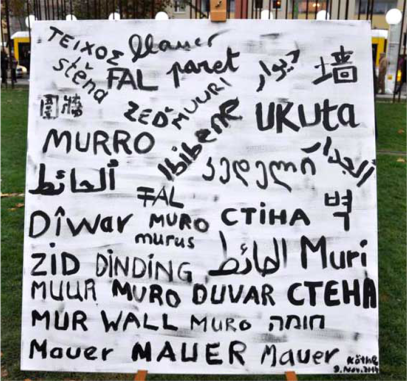 ΤΕΙΧΟΣ Mauer
stěna FAL paret دیوار 墙
圍牆 ZEĎ MUURI Ibibene UKUta
MURRO კედელი الجدار
الحائط FAL
Dîwar MURO СТІНА 벽
murus
ZID DINDING الحائط Muri
MUUR MURO DUVAR СТЕНА
MUR WALL MURO חומה
Mauer MAUER Mauer Käthe
9. Nov. 2014